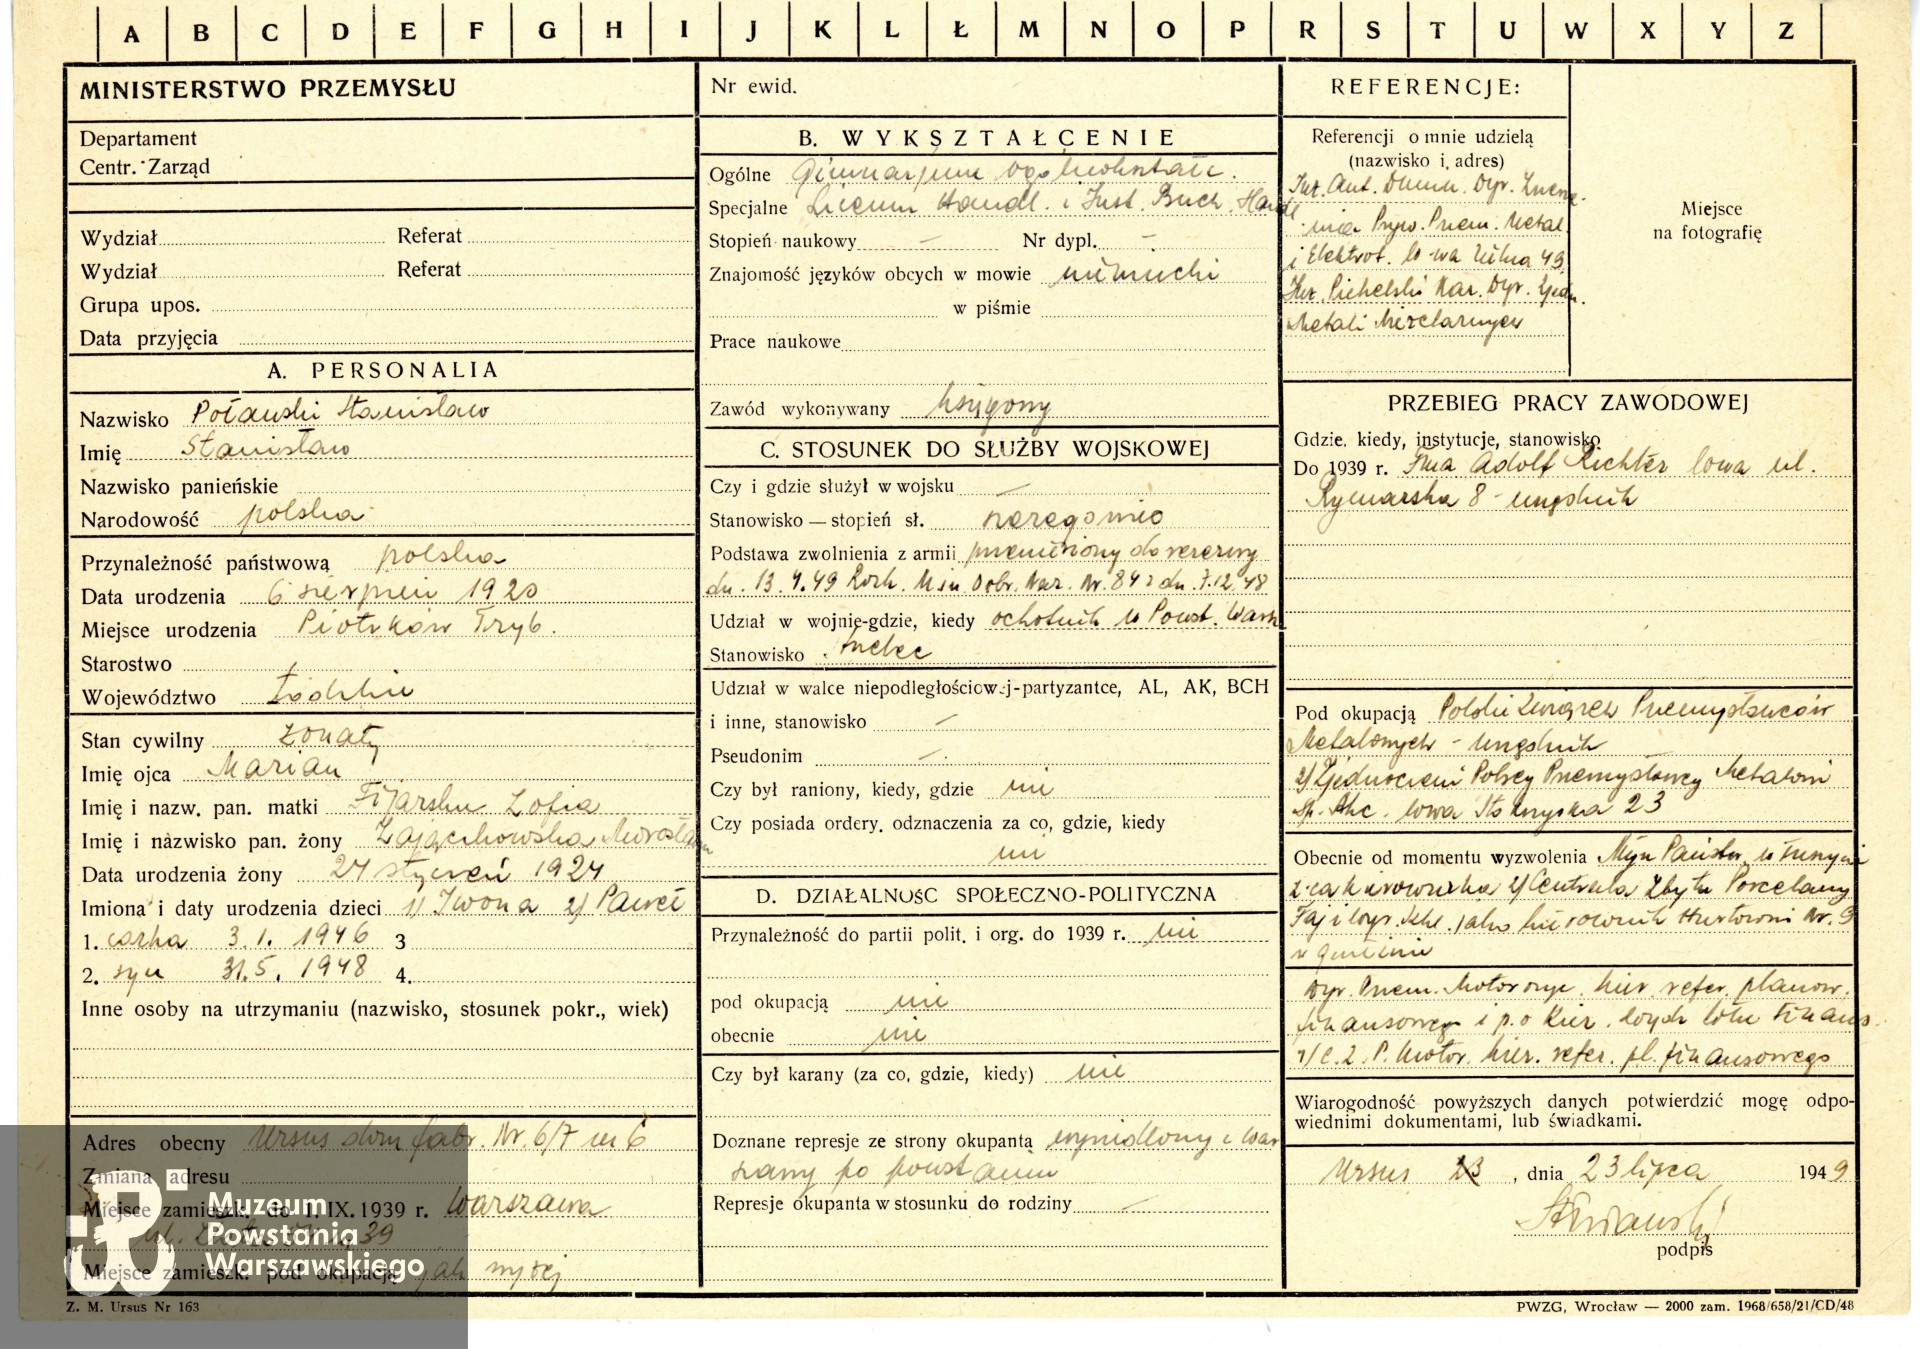 A B C D E F G H I J K L Ł M N O P R S T U W X Y Z
MINISTERSTWO PRZEMYSŁU
Departament
Centr. Zarząd
Wydział Referat
Wydział Referat
Grupa upos.
Data przyjęcia
A. PERSONALIA
Nazwisko Stanisław
Imię Stanisław
Nazwisko panieńskie
Narodowość polska
Przynależność państwową polska
Data urodzenia 6 sierpień 1920
Miejsce urodzenia Piotrków Tryb.
Starostwo
Województwo Łódzkie
Stan cywilny żonaty
Imię ojca Marian
Imię i nazw. pan. matki Zofia
Imię i nazwisko pan. żony
Data urodzenia żony 24 styczeń 1924
Imiona i daty urodzenia dzieci 1) Iwona 2) Paweł
1. córka 3.1.1946 3
2. syn 31.5.1948 4.
Inne osoby na utrzymaniu (nazwisko, stosunek pokr., wiek)
Adres obecny Ursus dom fabr. Nr. 6/7 m 6
Zmiana adresu
Miejsce zamieszk. do 1. IX. 1939 r. Warszawa
ul. 39
Miejsce zamieszk. pod okupacją jak wyżej
Z. M. Ursus Nr 163
Muzeum
Powstania
Warszawskiego
Nr ewid.
B. WYKSZTAŁCENIE
Ogólne Gimnazjum ogólnokształc.
Specjalne Liceum Handl. i Inst. Buch. Handl
Stopień naukowy – Nr dypl. –
Znajomość języków obcych w mowie niemiecki
w piśmie
Prace naukowe
Zawód wykonywany księgowy
C. STOSUNEK DO SŁUŻBY WOJSKOWEJ
Czy i gdzie służył w wojsku –
Stanowisko — stopień sł. szeregowiec
Podstawa zwolnienia z armii przeniesiony do rezerwy
dn. 13.4.49 Rozk. Min. Obr. Nar. Nr. 84 z dn. 7.12.48
Udział w wojnie-gdzie, kiedy ochotnik w Powst. Warsz
Stanowisko strzelec
Udział w walce niepodległościowej-partyzantce, AL, AK, BCH
i inne, stanowisko –
Pseudonim –
Czy był raniony, kiedy, gdzie nie
Czy posiada ordery, odznaczenia za co, gdzie, kiedy
nie
D. DZIAŁALNOŚĆ SPOŁECZNO-POLITYCZNA
Przynależność do partii polit. i org. do 1939 r. nie
pod okupacją nie
obecnie nie
Czy był karany (za co, gdzie, kiedy) nie
Doznane represje ze strony okupanta wysiedlony z War
szawy po powstaniu
Represje okupanta w stosunku do rodziny –
REFERENCJE:
Referencji o mnie udzielą
(nazwisko i adres)
Inż. Ant. Dyr.
Pryw. Przem. Metal.
i Elektrot. W-wa 49
Inż. Dyr. Zjedn.
Metali Nieżelaznych
Miejsce
na fotografię
PRZEBIEG PRACY ZAWODOWEJ
Gdzie, kiedy, instytucje, stanowisko
Do 1939 r. Fma Adolf Richter Wwa ul.
Rymarska 8 - urzędnik
Pod okupacją Polski Związek Przemysłowców
Metalowych - urzędnik
2) Zjednoczeni Polscy Przemysłowcy Metalowi
Sp. Akc. Wwa 23
Obecnie od momentu wyzwolenia Młyn Państw. w
z-ca kierownika 2) Centrala Zbytu Porcelany
Faj. i Wyr. Szkl. jako kierownik Hurtowni Nr. 9
w Gnieźnie
Dyr. Przem. Motoryz. kier. refer. planow.
finansowego i p.o Kier. Finans.
Z. P. Motor. kier. refer. pl. finansowego
Wiarogodność powyższych danych potwierdzić mogę odpo-
wiednimi dokumentami, lub świadkami.
Ursus , dnia 23 lipca 1949
podpis
PWZG, Wrocław — 2000 zam. 1968/658/21/CD/48